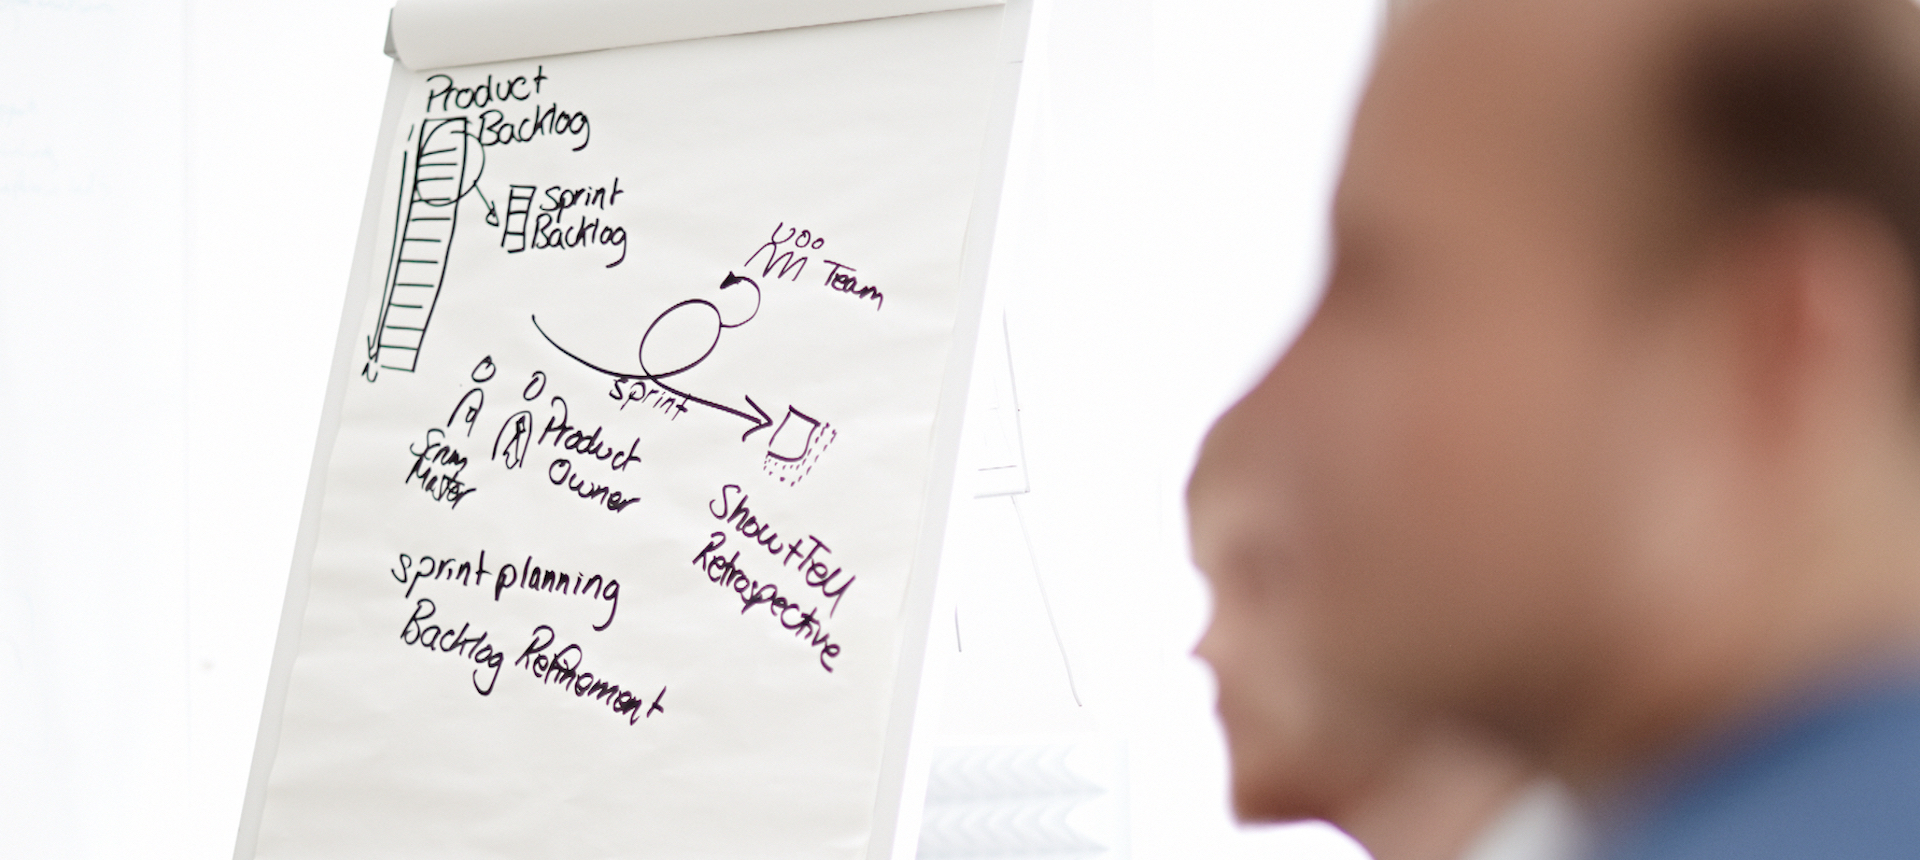 Product
Backlog
Sprint
Backlog
Team
sprint
Scrum
Master
Product
Owner
Show+Tell
Retrospective
sprint planning
Backlog Refinement